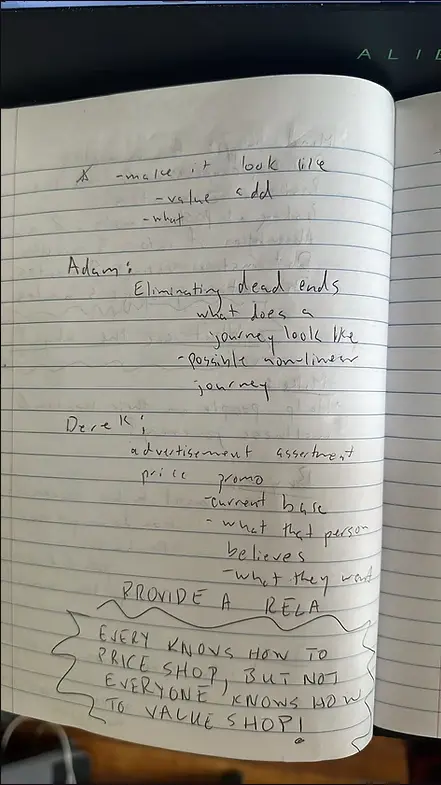 ALIE
* -make it look like
-value add
-what
Adam:
Eliminating dead ends
what does a
journey look like
-possible non-linear
journey
Derek:
advertisement assortment
price promo
-current base
-what that person
believes
-what they want
PROVIDE A RELA
EVERY KNOWS HOW TO
PRICE SHOP, BUT NOT
EVERYONE KNOWS HOW
TO VALUE SHOP!